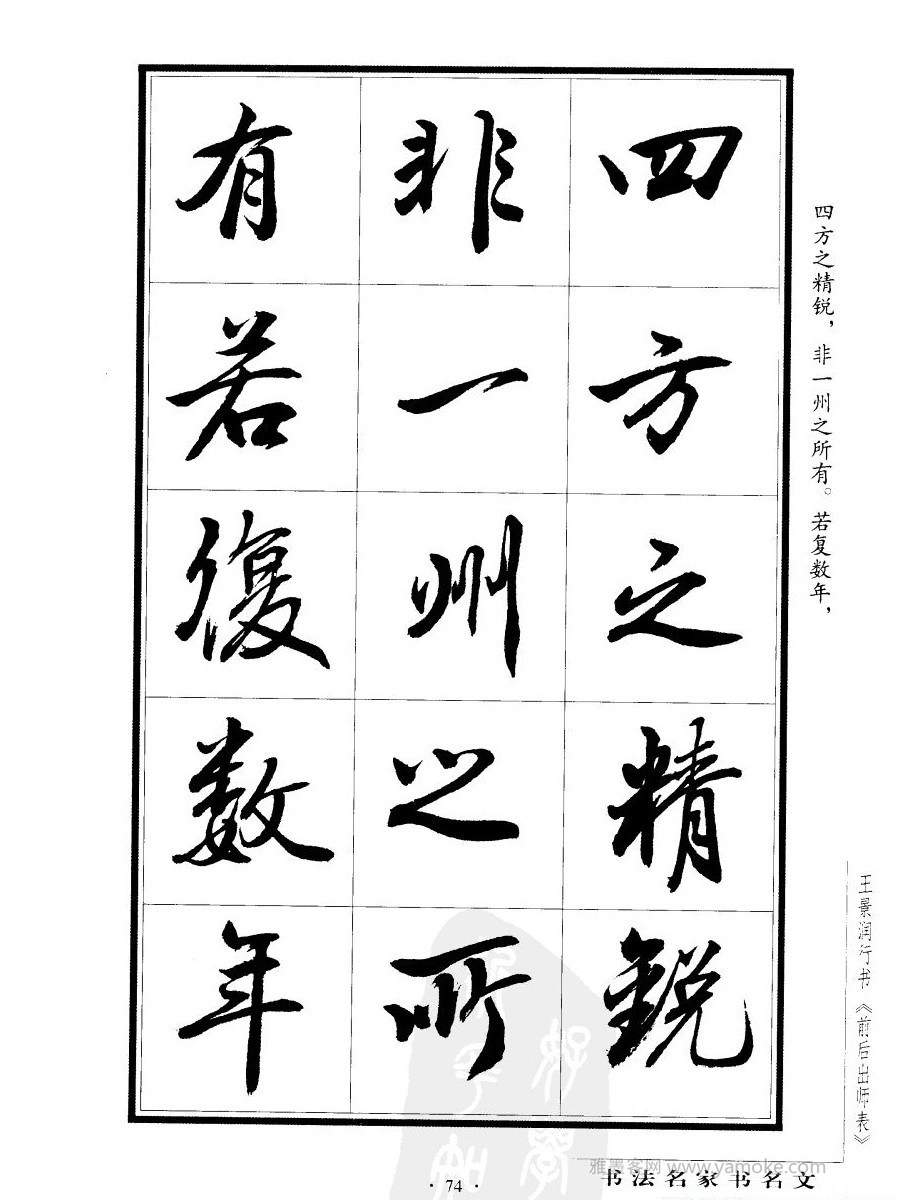 四方之精鋭
非一州之所
有若復数年
四方之精锐，非一州之所有。若复数年，
王景润行书《前后出师表》
雅墨客网 www.yamoke.com
书法名家书名文
· 74 ·